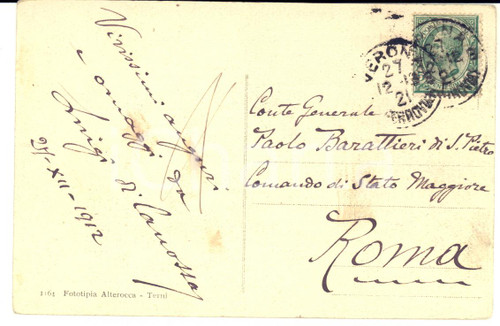 Vivissimi auguri
e omaggi da
Luigi di Canossa
27-XII-1912
Conte Generale
Paolo Barattieri di S. Pietro
Comando di Stato Maggiore
Roma
VERONA
27
12
21
FERROVIA
1165 Fototipia Alterocca - Terni